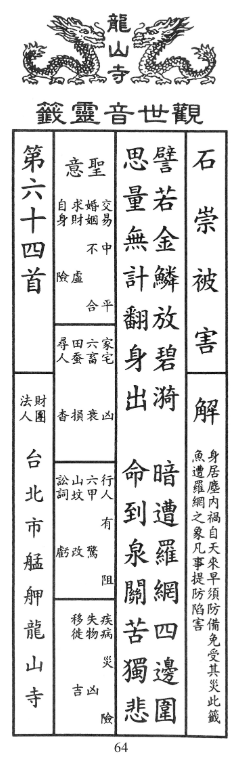 龍山寺
觀世音靈籤
石崇被害
解
身居塵內禍自天來早須防備免受其災此籤
魚遭羅網之象凡事提防陷害
譬若金鱗放碧漪 暗遭羅網四邊圍
思量無計翻身出 命到泉關苦獨悲
聖意
交易中平
婚姻不合
求財虛
自身險
家宅凶
六畜衰
田蚕損
尋人杳
行人有阻
六甲驚
山坟改
訟詞虧
疾病災險
失物凶
移徙吉
第六十四首
財團法人
台北市艋舺龍山寺
64